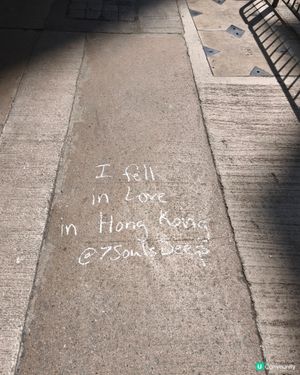 I fell
in Love
in Hong Kong
@7SoulsDeep
U Community